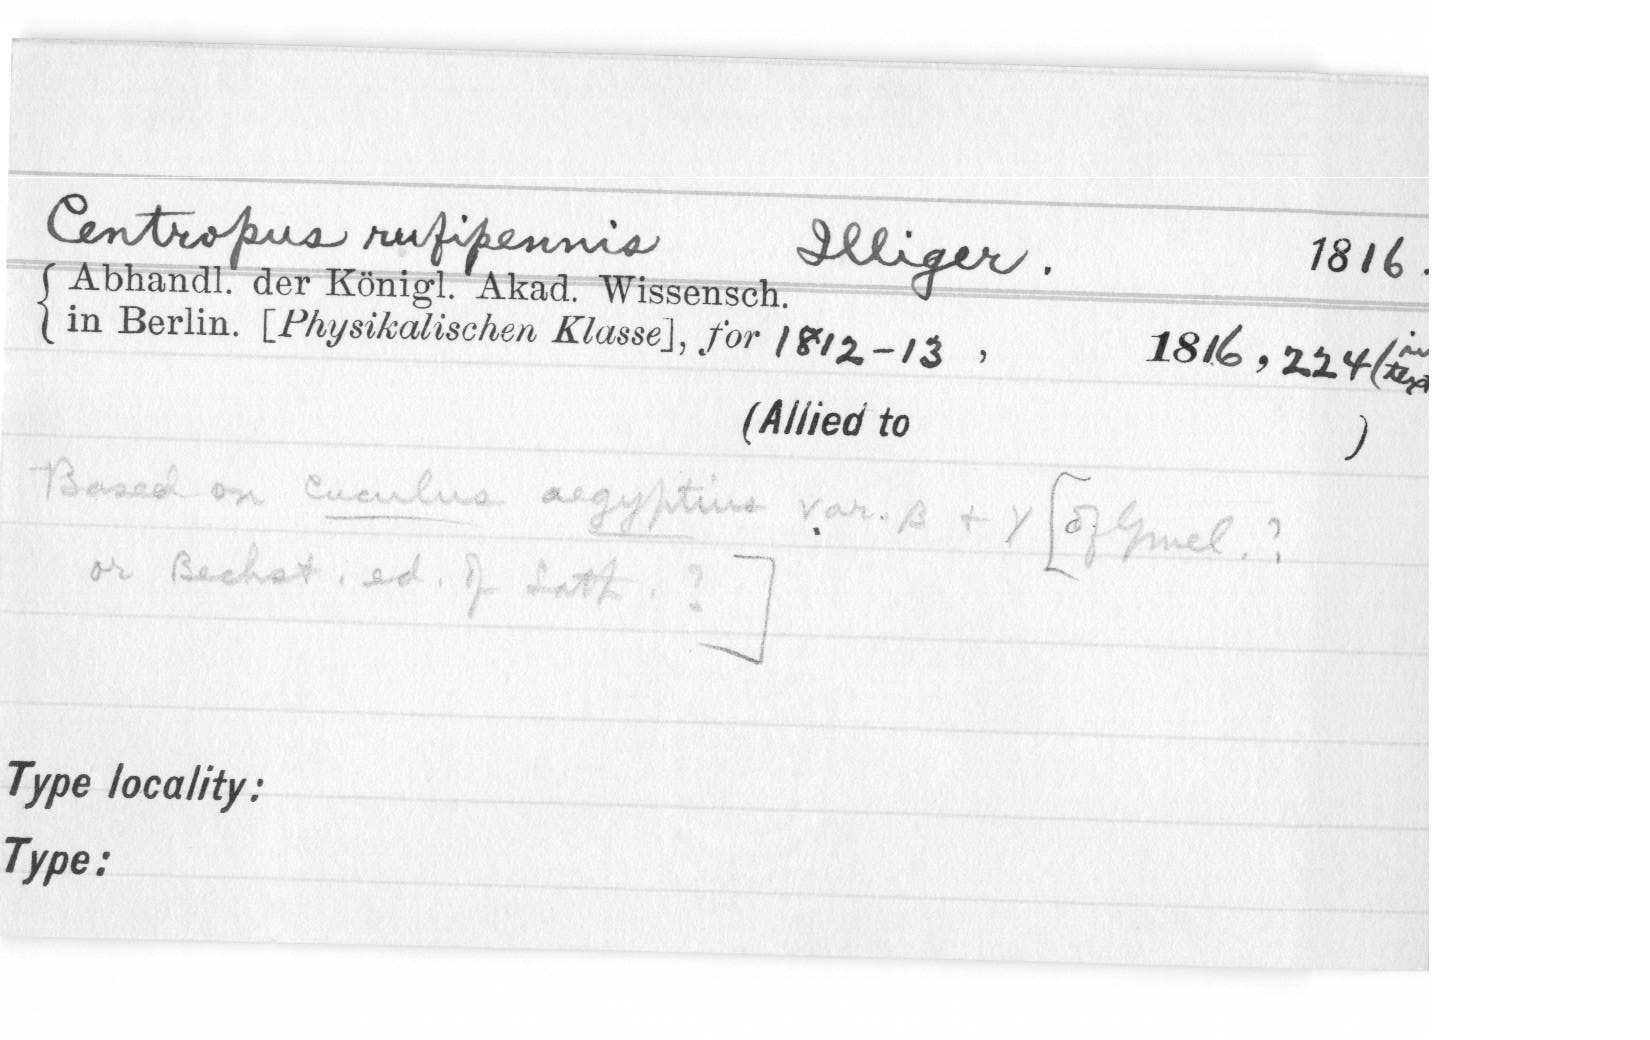 Centropus rufipennis Illiger. 1816.
{ Abhandl. der Königl. Akad. Wissensch.
in Berlin. [Physikalischen Klasse], for 1812-13, 1816, 224 (in text
(Allied to )
Based on Cuculus aegyptius var. β + γ [of Gmel.?
or Bechst. ed. of Lath.?]
Type locality:
Type: